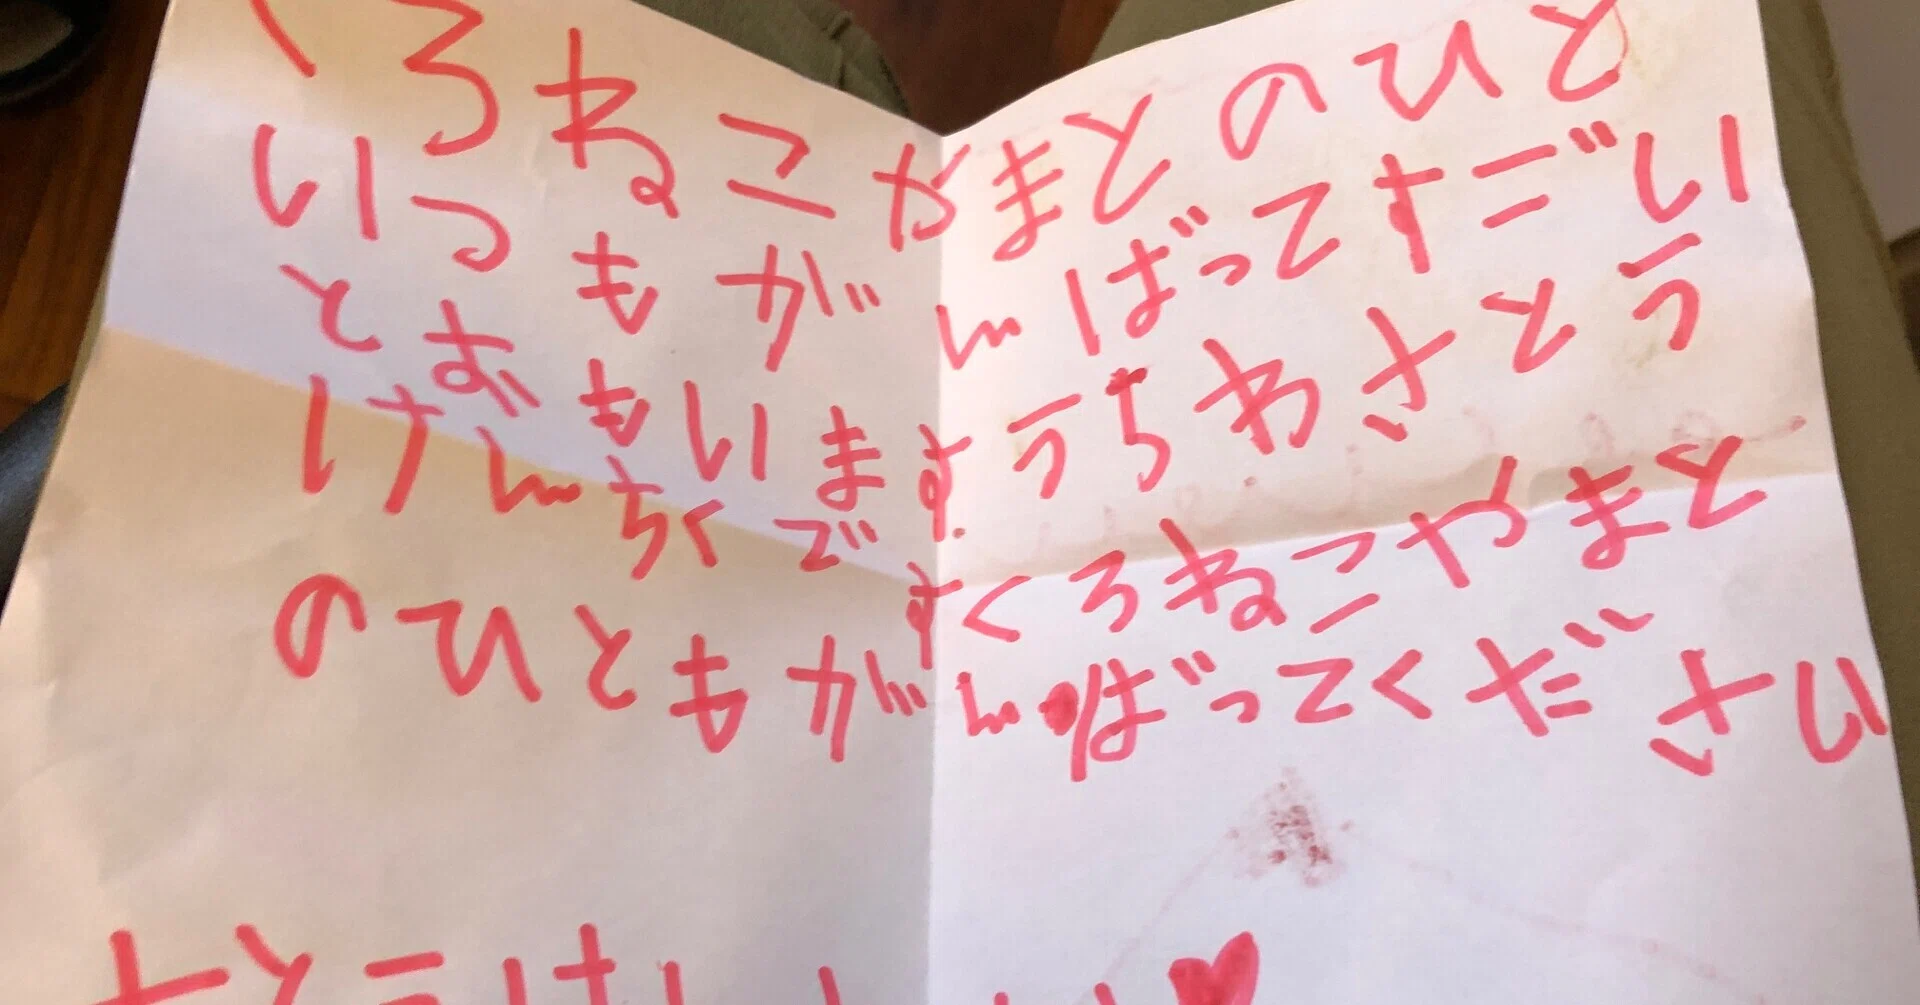 くろねこやまとのひと
いつもがんばってすごい
とおもいます。うちわさとう
けんちくですくろねこやまと
のひともがんばってください